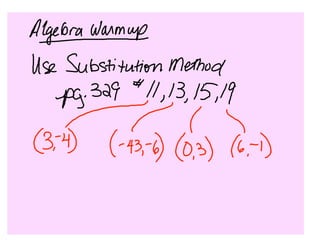 Algebra Warmup
Use Substitution Method
pg. 329 # 11, 13, 15, 19
(3,-4) (-43,-6) (0,3) (6,-1)